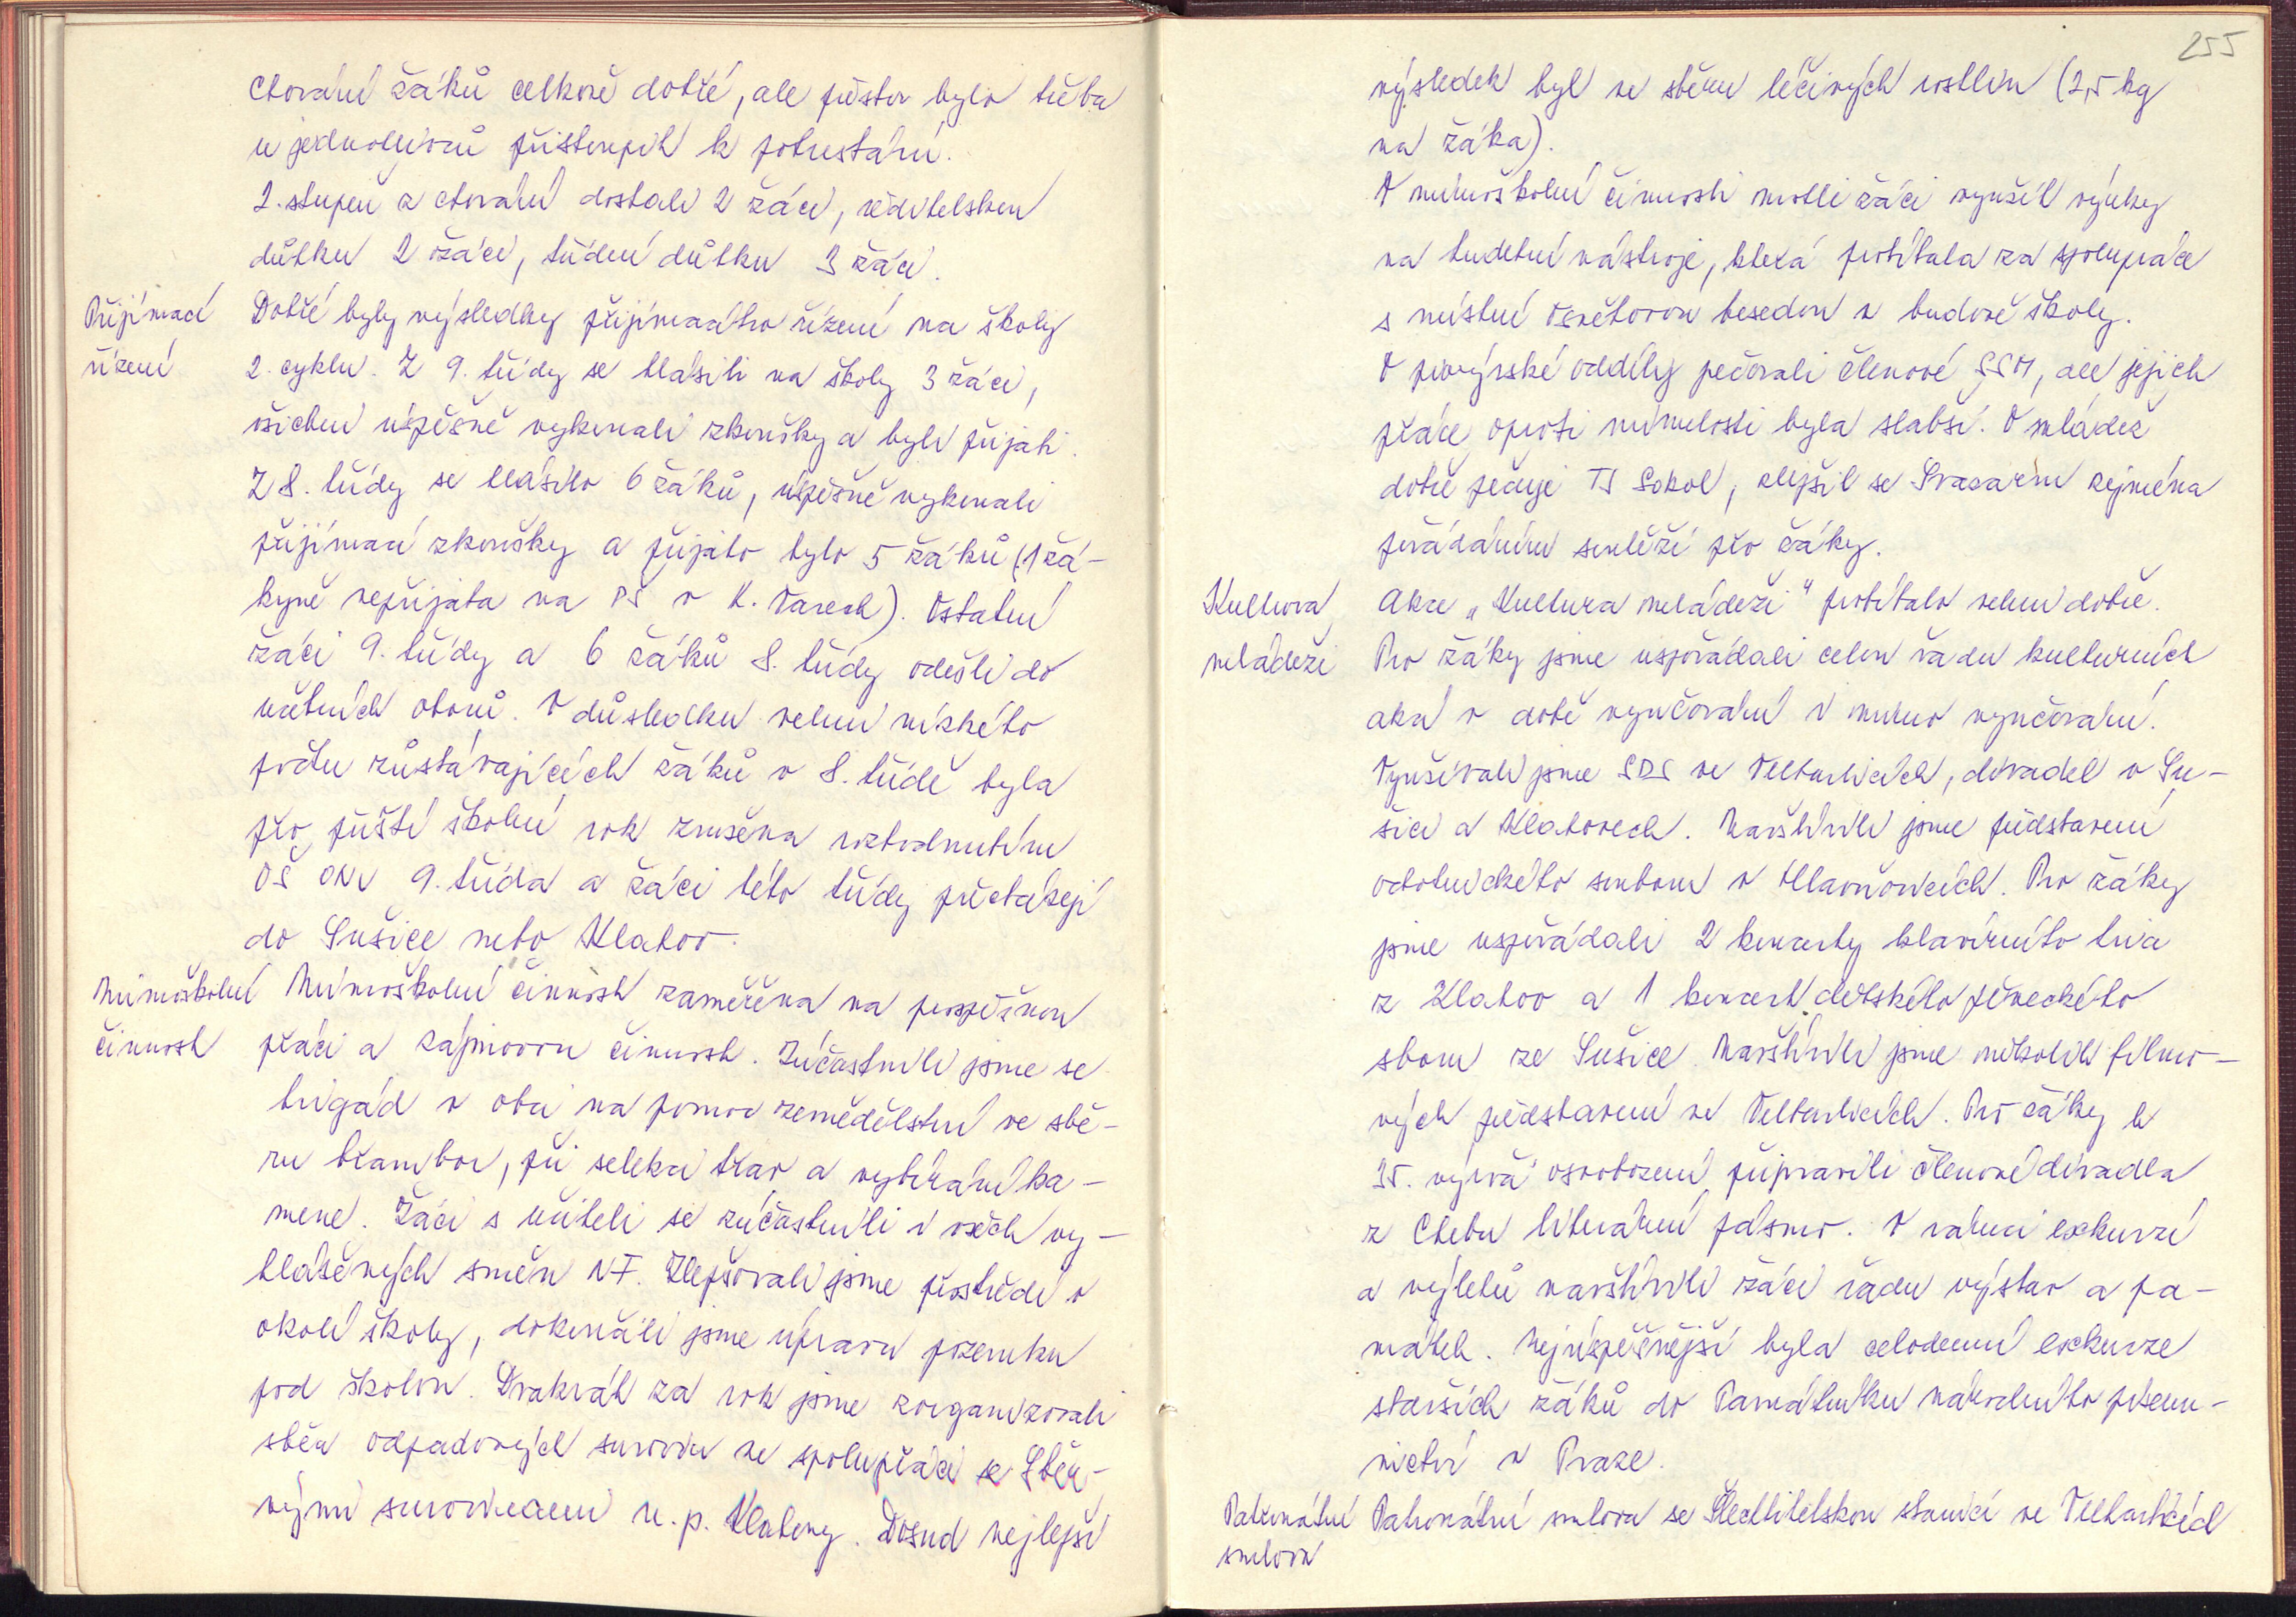 chování žáků celkově dobré, ale přesto bylo třeba
u jednotlivců přistoupit k potrestání.
2. stupeň z chování dostali 2 žáci, ředitelskou
důtku 2 žáci, třídní důtku 3 žáci.
Přijímací
řízení
Dobré byly výsledky přijímacího řízení na školy
2. cyklu. Z 9. třídy se hlásili na školy 3 žáci,
všichni úspěšně vykonali zkoušky a byli přijati.
Z 8. třídy se hlásilo 6 žáků, úspěšně vykonali
přijímací zkoušky a přijato bylo 5 žáků (1 žá-
kyně nepřijata na PŠ v K. Varech). Ostatní
žáci 9. třídy a 6 žáků 8. třídy odešli do
učebních oborů. V důsledku velmi nízkého
počtu zůstávajících žáků v 8. třídě byla
pro příští školní rok zrušena rozhodnutím
OŠ ONV 9. třída a žáci této třídy přecházejí
do Sušice nebo Klatov.
Mimoškolní
činnost
Mimoškolní činnost zaměřena na prospěšnou
práci a zájmovou činnost. Zúčastnili jsme se
brigád v obci na pomoc zemědělství ve sbě-
ru brambor, při selekci trav a vybírání ka-
mene. Žáci s učiteli se zúčastnili i všech vy-
hlášených směn NF. Zlepšovali jsme prostředí v
okolí školy, dokončili jsme úpravu pozemku
pod školou. Dvakrát za rok jsme zorganizovali
sběr odpadových surovin ve spolupráci se Sběr-
nými surovinami n. p. Klatovy. Dosud nejlepší
255
výsledek byl ve sběru léčivých rostlin (2,5 kg
na žáka).
V mimoškolní činnosti mohli žáci využít výuky
na hudební nástroje, která probíhala za spolupráce
s místní Osvětovou besedou v budově školy.
O pionýrské oddíly pečovali členové SSM, ale jejich
práce oproti minulosti byla slabší. O mládež
dobře pečuje TJ Sokol, zlepšil se Svazarm zejména
pořádáním soutěží pro žáky.
Kultura
mládeži
Akce „Kultura mládeži“ probíhala velmi dobře.
Pro žáky jsme uspořádali celou řadu kulturních
akcí v době vyučování i mimo vyučování.
Využívali jsme SDS ve Velharticích, divadel v Su-
šici a Klatovech. Navštívili jsme představení
ochotnického souboru v Hlavňovicích. Pro žáky
jsme uspořádali 2 koncerty klavírního tria
z Klatov a 1 koncert dětského pěveckého
sboru ze Sušice. Navštívili jsme několik filmo-
vých představení ve Velharticích. Pro žáky k
35. výročí osvobození připravili členové divadla
z Chebu literární pásmo. V rámci exkurzí
a výletů navštívili žáci řadu výstav a pa-
mátek. Nejúspěšnější byla celodenní exkurze
starších žáků do Památníku národního písem-
nictví v Praze.
Patronátní
smlouva
Patronátní smlouva se Šlechtitelskou stanicí ve Velharticích